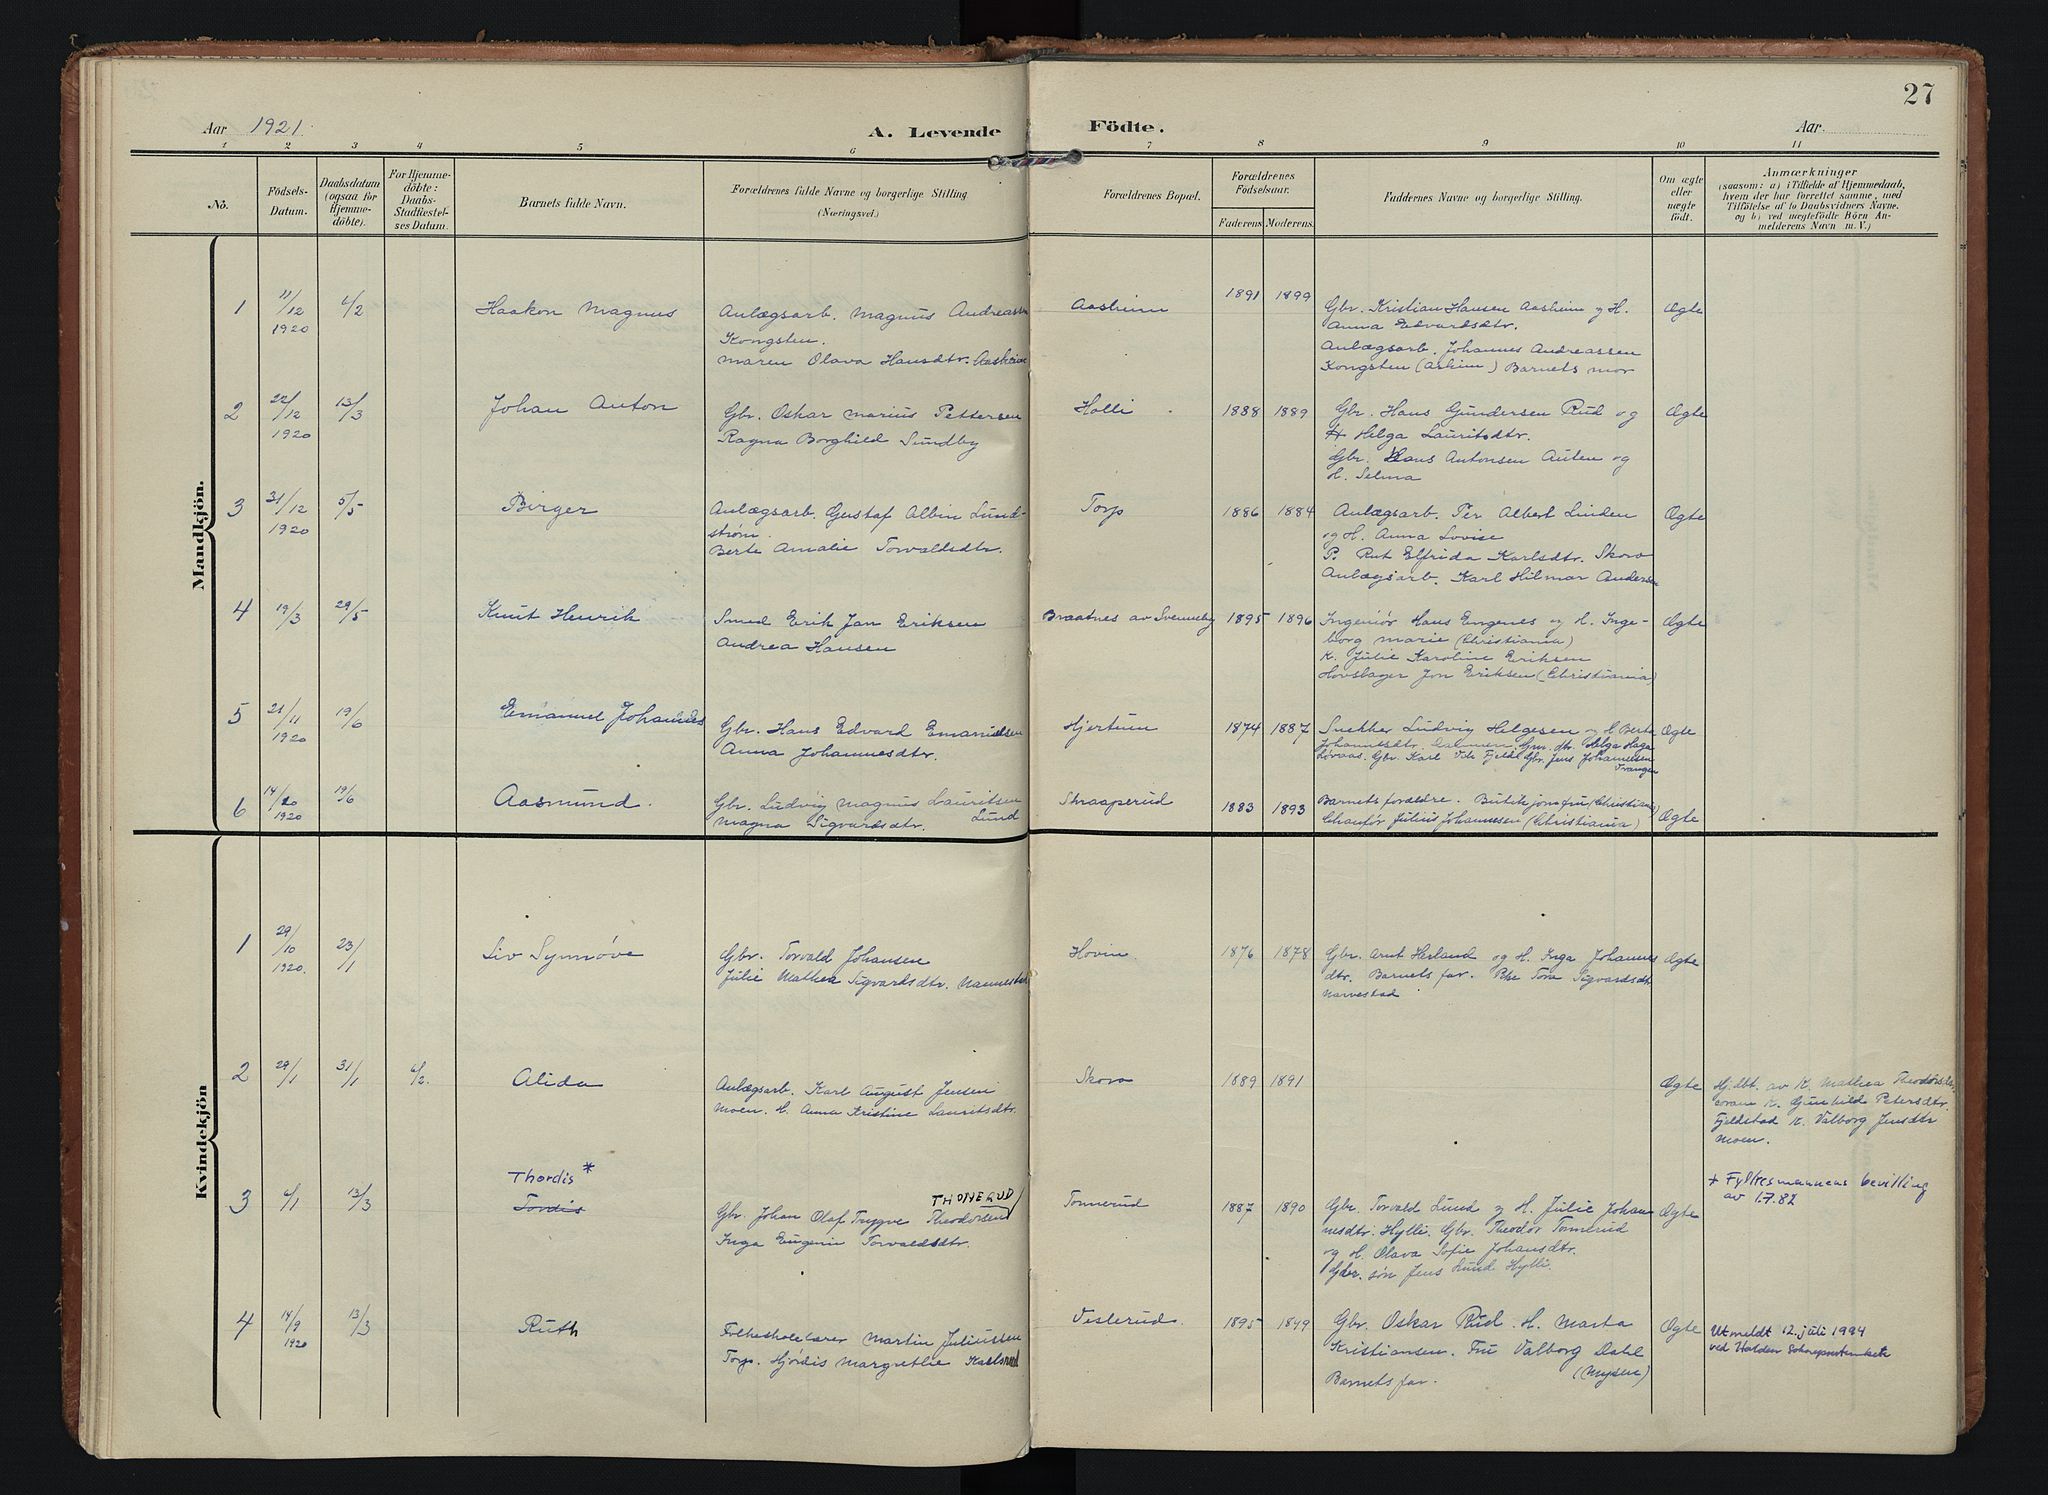 27
Aar 1921.
A. Levende Födte.
Aar.
1 2 3 4 5 6 7 8 9 10 11
No.
Födsels-Datum.
Daabsdatum (ogsaa for Hjemmedöbte).
For Hjemmedöbte: Daabs-Stadfæstelses Datum.
Barnets fulde Navn.
Forældrenes fulde Navne og borgerlige Stilling. (Næringsvei.)
Forældrenes Bopæl.
Forældrenes Födselsaar.
Faderens Moderens
Faddernes Navne og borgerlige Stilling.
Om ægte eller uægte födt.
Anmærkninger
(saasom: a) i Tilfælde af Hjemmedaab,
hvem der har forrettet samme, med
Tilföielse af to Daabsvidners Navne,
og b) ved uægtefödte Börn An-
melderens Navn m. V.)
Mandkjön.
1 11/12 1920 6/2 Haakon Magnus
Anlægsarb. Magnus Andreassen
Kongsten.
Maren Olava Hansdtr. Aasheim
Aasheim 1891 1899
Gbr. Kristian Hansen Aasheim og H.
Anna Edvardsdtr.
Anlægsarb. Johannes Andreassen
Kongsten (Askim) Barnets mor
Ægte
2 22/12 1920 13/3 Johan Anton
Gbr. Oskar Marius Pettersen
Ragna Borghild Sundby
Holli 1888 1889
Gbr. Hans Gundersen Rud og
H Helga Lauritsdtr.
Gbr. Hans Antonsen Auten og
H. Selma
Ægte
3 31/12 1920 5/5 Birger
Anlægsarb. Gustaf Albin Lund-
strøm.
Berte Amalie Torvaldsdtr.
Torp 1886 1884
Anlægsarb. Per Albert Linden
og H. Anna Lovise
P. Rut Elfrida Karlsdtr. Skoro
Anlægsarb. Karl Hilmar Andersen
Ægte
4 19/3 29/5 Knut Henrik
Smed Erik Jan Eriksen
Andrea Hansen
Braatnes av Svenneby 1895 1896
Ingeniør Hans Engenes og H. Inge-
borg Marie (Christiania)
K. Julie Karoline Eriksen
Hovslager Jon Eriksen (Christiania)
Ægte
5 21/11 1920 19/6 Emanuel Johannes
Gbr. Hans Edvard Emanuelsen
Anna Johannesdtr.
Hjertum 1874 1887
Snekker Ludvig Helgesen og H Berte
Johannesdtr. Gbr. dtr. Helga Haga
Løvaas. Gbr. Karl Fjeld Gbr. Jens Johannesen
Ægte
6 1920 19/6 Aasmund.
Gbr. Ludvig Magnus Lauritsen
Lund
Magna Sigvardsdtr.
Skraaperud 1883 1893
Barnets forældre. Butikjomfru (Christiania)
Chauffør Julius Johannesen (Christiania)
Ægte
Kvindekjön
1 29/10 1920. 23/1 Liv Synnøve
Gbr. Torvald Johansen
Julie Mathea Sigvardsdtr.
Hovin. 1876 1878
Gbr. Arnt Herland og H. Inga Johannes
dtr. Barnets far. Pike Tora Sigvardsdtr.
Navestad
Ægte
2 29/1 31/1 6/2. Alida
Anlægsarb. Karl August Jensen
Moen. H. Anna Kristine Lauritsdtr.
Skoro 1889 1891
Ægte
Hj.dbt. av K. Mathea Theodorsdtr.
K. Gunhilde Petersdtr.
Fjeldstad K. Valborg Jensdtr
Moen.
3 6/1 13/3 Thordis*
Tordis
THONERUD
Gbr. Johan Olaf Trygve Theodorsen
Inga Eugenie Torvaldsdtr.
Tonnerud 1887 1890
Gbr. Torvald Lund og H. Julie Johan
nesdtr. Hylli. Gbr. Theodor Tonnerud
og H. Olava Sofie Johansdtr.
Gbr. søn Jens Lund Hylli.
Ægte
+ Fylkesmannens bevilling
av 1.7.82
4 14/9 1920 13/3 Ruth
Folkeskolelærer Martin Juliussen
Torp. Hjördis Margrethe Karlsrud
Veslerud. 1895 1849
Gbr. Oskar Rud. H. Marta
Kristiansen. Fru Valborg Dahl
(Mysen)
Barnets far.
Ægte
Utmeldt 12. juli 1994
ved Halden Sokneprestembete